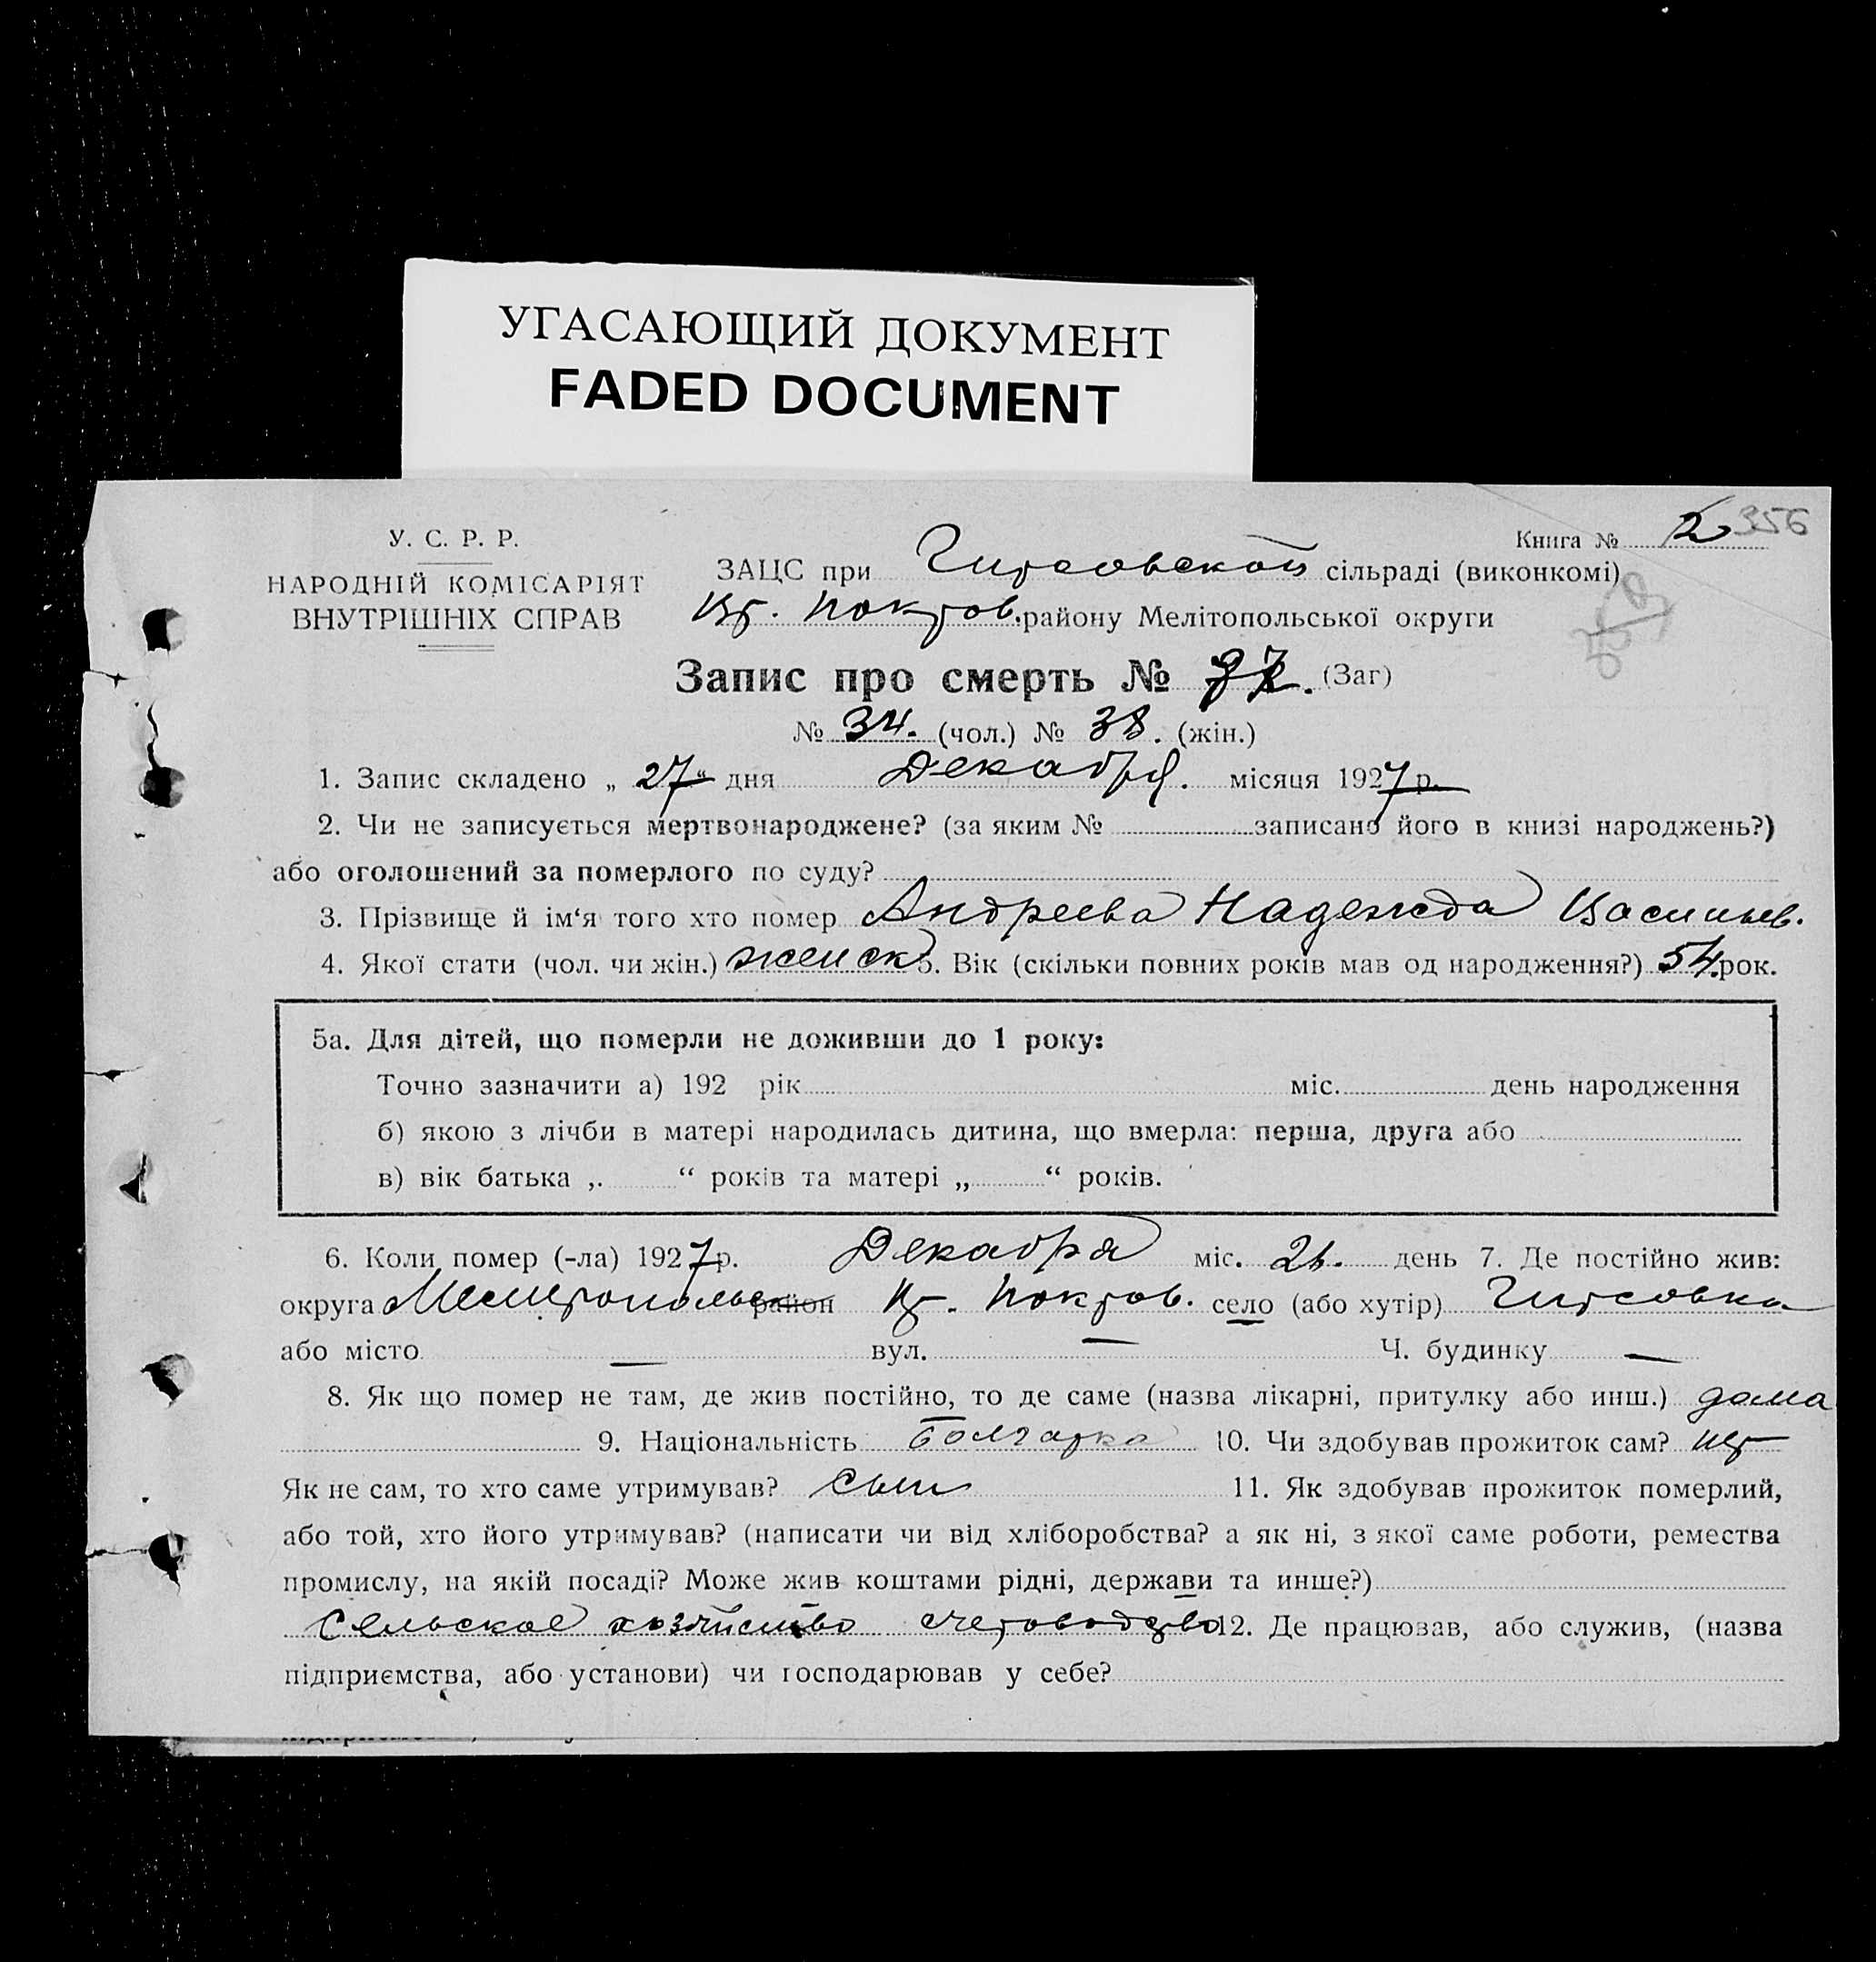 УГАСАЮЩИЙ ДОКУМЕНТ
FADED DOCUMENT
У. С. Р. Р.
НАРОДНІЙ КОМІСАРІЯТ
ВНУТРІШНІХ СПРАВ
Книга № 2 356
ЗАЦС при Гирсовской сільраді (виконкомі)
Цг. Покров. району Мелітопольської округи
Запис про смерть № 72. (Заг)
№ 34. (чол.) № 38. (жін.)
1. Запис складено „ 27 “ дня Декабря. місяця 1927 р.
2. Чи не записується мертвонароджене? (за яким № записано його в книзі народжень?)
або оголошений за померлого по суду?
3. Прізвище й ім‘я того хто помер Андреева Надежда Васильев.
4. Якої стати (чол. чи жін.) женск 5. Вік (скільки повних років мав од народження?) 54. рок.
5а. Для дітей, що померли не доживши до 1 року:
Точно зазначити а) 192 рік міс. день народження
б) якою з лічби в матері народилась дитина, що вмерла: перша, друга або
в) вік батька „ “ років та матері „ “ років.
6. Коли помер (-ла) 1927 р. Декабря міс. 26. день 7. Де постійно жив:
округа Мелитопольск район Цг. Покров. село (або хутір) Гирсовка
або місто — вул. — Ч. будинку —
8. Як що помер не там, де жив постійно, то де саме (назва лікарні, притулку або инш.) дома
9. Національність болгарка 10. Чи здобував прожиток сам? нет
Як не сам, то хто саме утримував? сын 11. Як здобував прожиток померлий,
або той, хто його утримував? (написати чи від хліборобства? а як ні, з якої саме роботи, ремества
промислу, на якій посаді? Може жив коштами рідні, держави та инше?)
Сельское хозяйство счетоводство 12. Де працював, або служив, (назва
підприємства, або установи) чи господарював у себе?